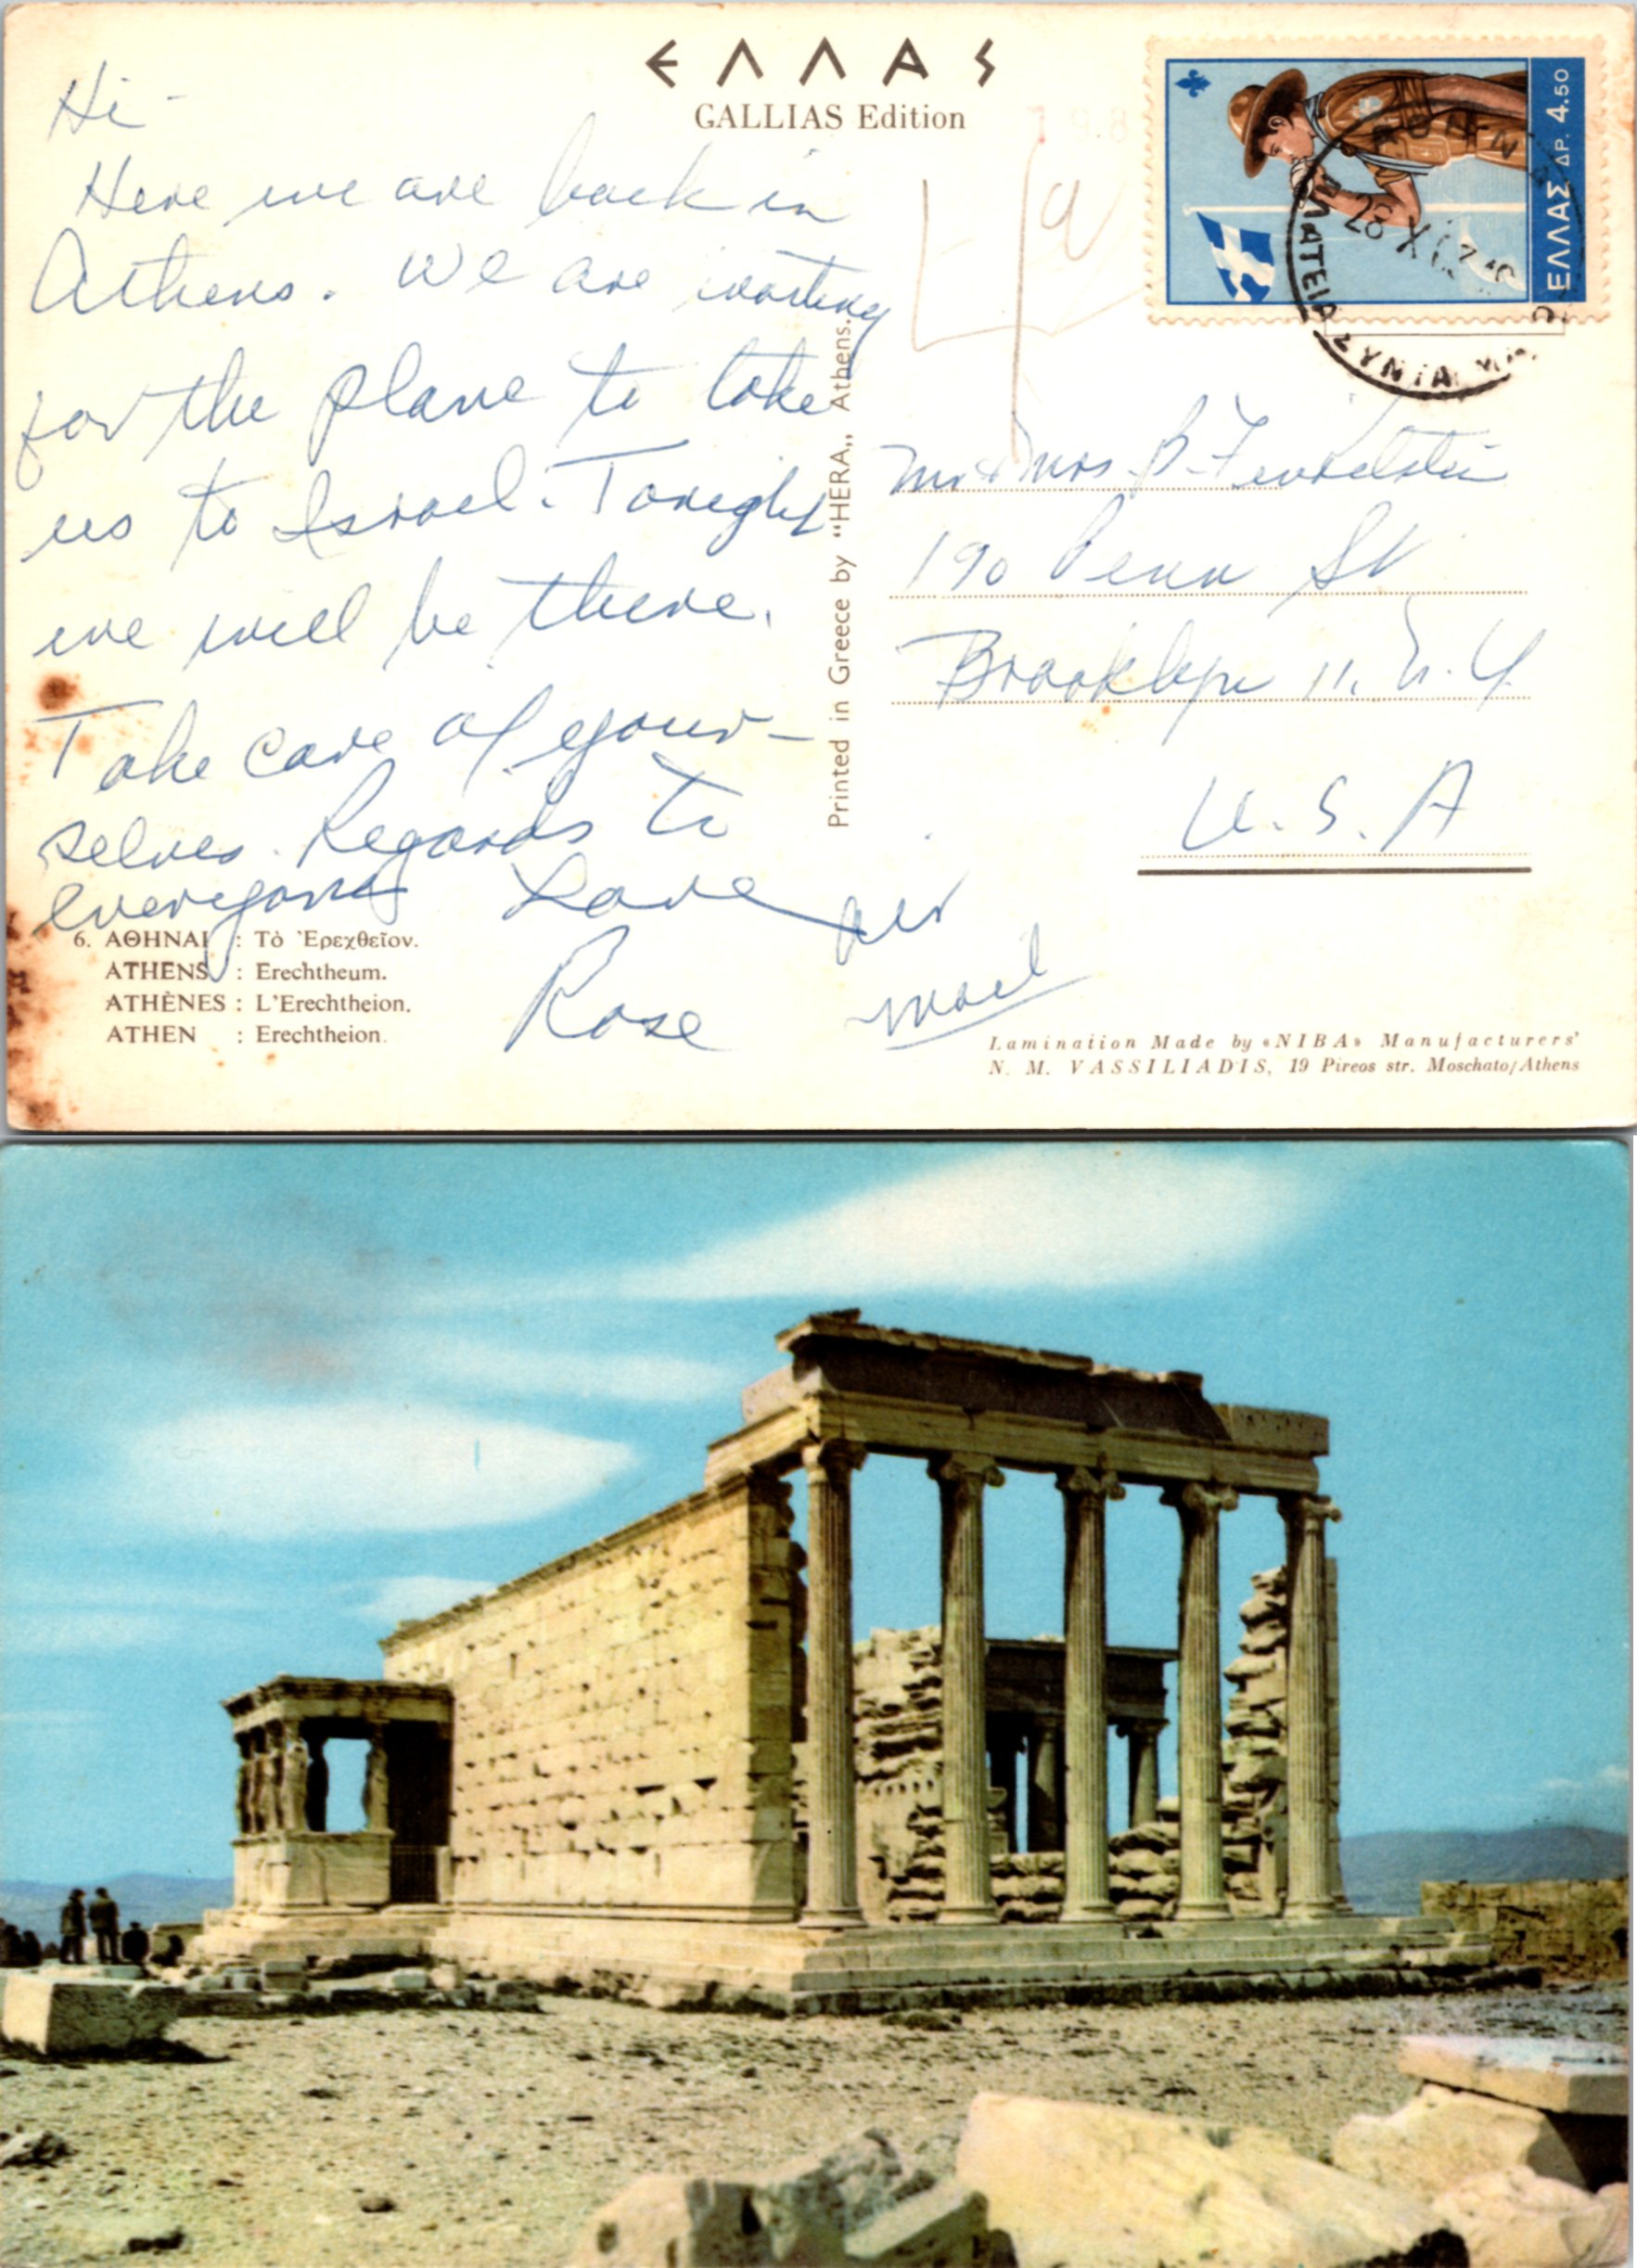 ΕΛΛΑΣ
GALLIAS Edition
Hi -
Here we are back in
Athens. We are waiting
for the plane to take
us to Israel. Tonight
we will be there.
Take care of your-
selves. Regards to
everyone Love
Rose
Air
mail
6. ΑΘΗΝΑΙ : Τὸ Ἐρεχθεῖον.
ATHENS : Erechtheum.
ATHÈNES : L'Erechtheion.
ATHEN : Erechtheion.
Printed in Greece by "HERA,, Athens.
ΕΛΛΑΣ ΔΡ. 4.50
ΠΛΑΤΕΙΑ ΣΥΝΤΑΓΜΑ
Mr & Mrs B.
190 Penn St
Brooklyn 11, N.Y
U.S.A
Lamination Made by «NIBA» Manufacturers'
N. M. VASSILIADIS, 19 Pireos str. Moschato/Athens